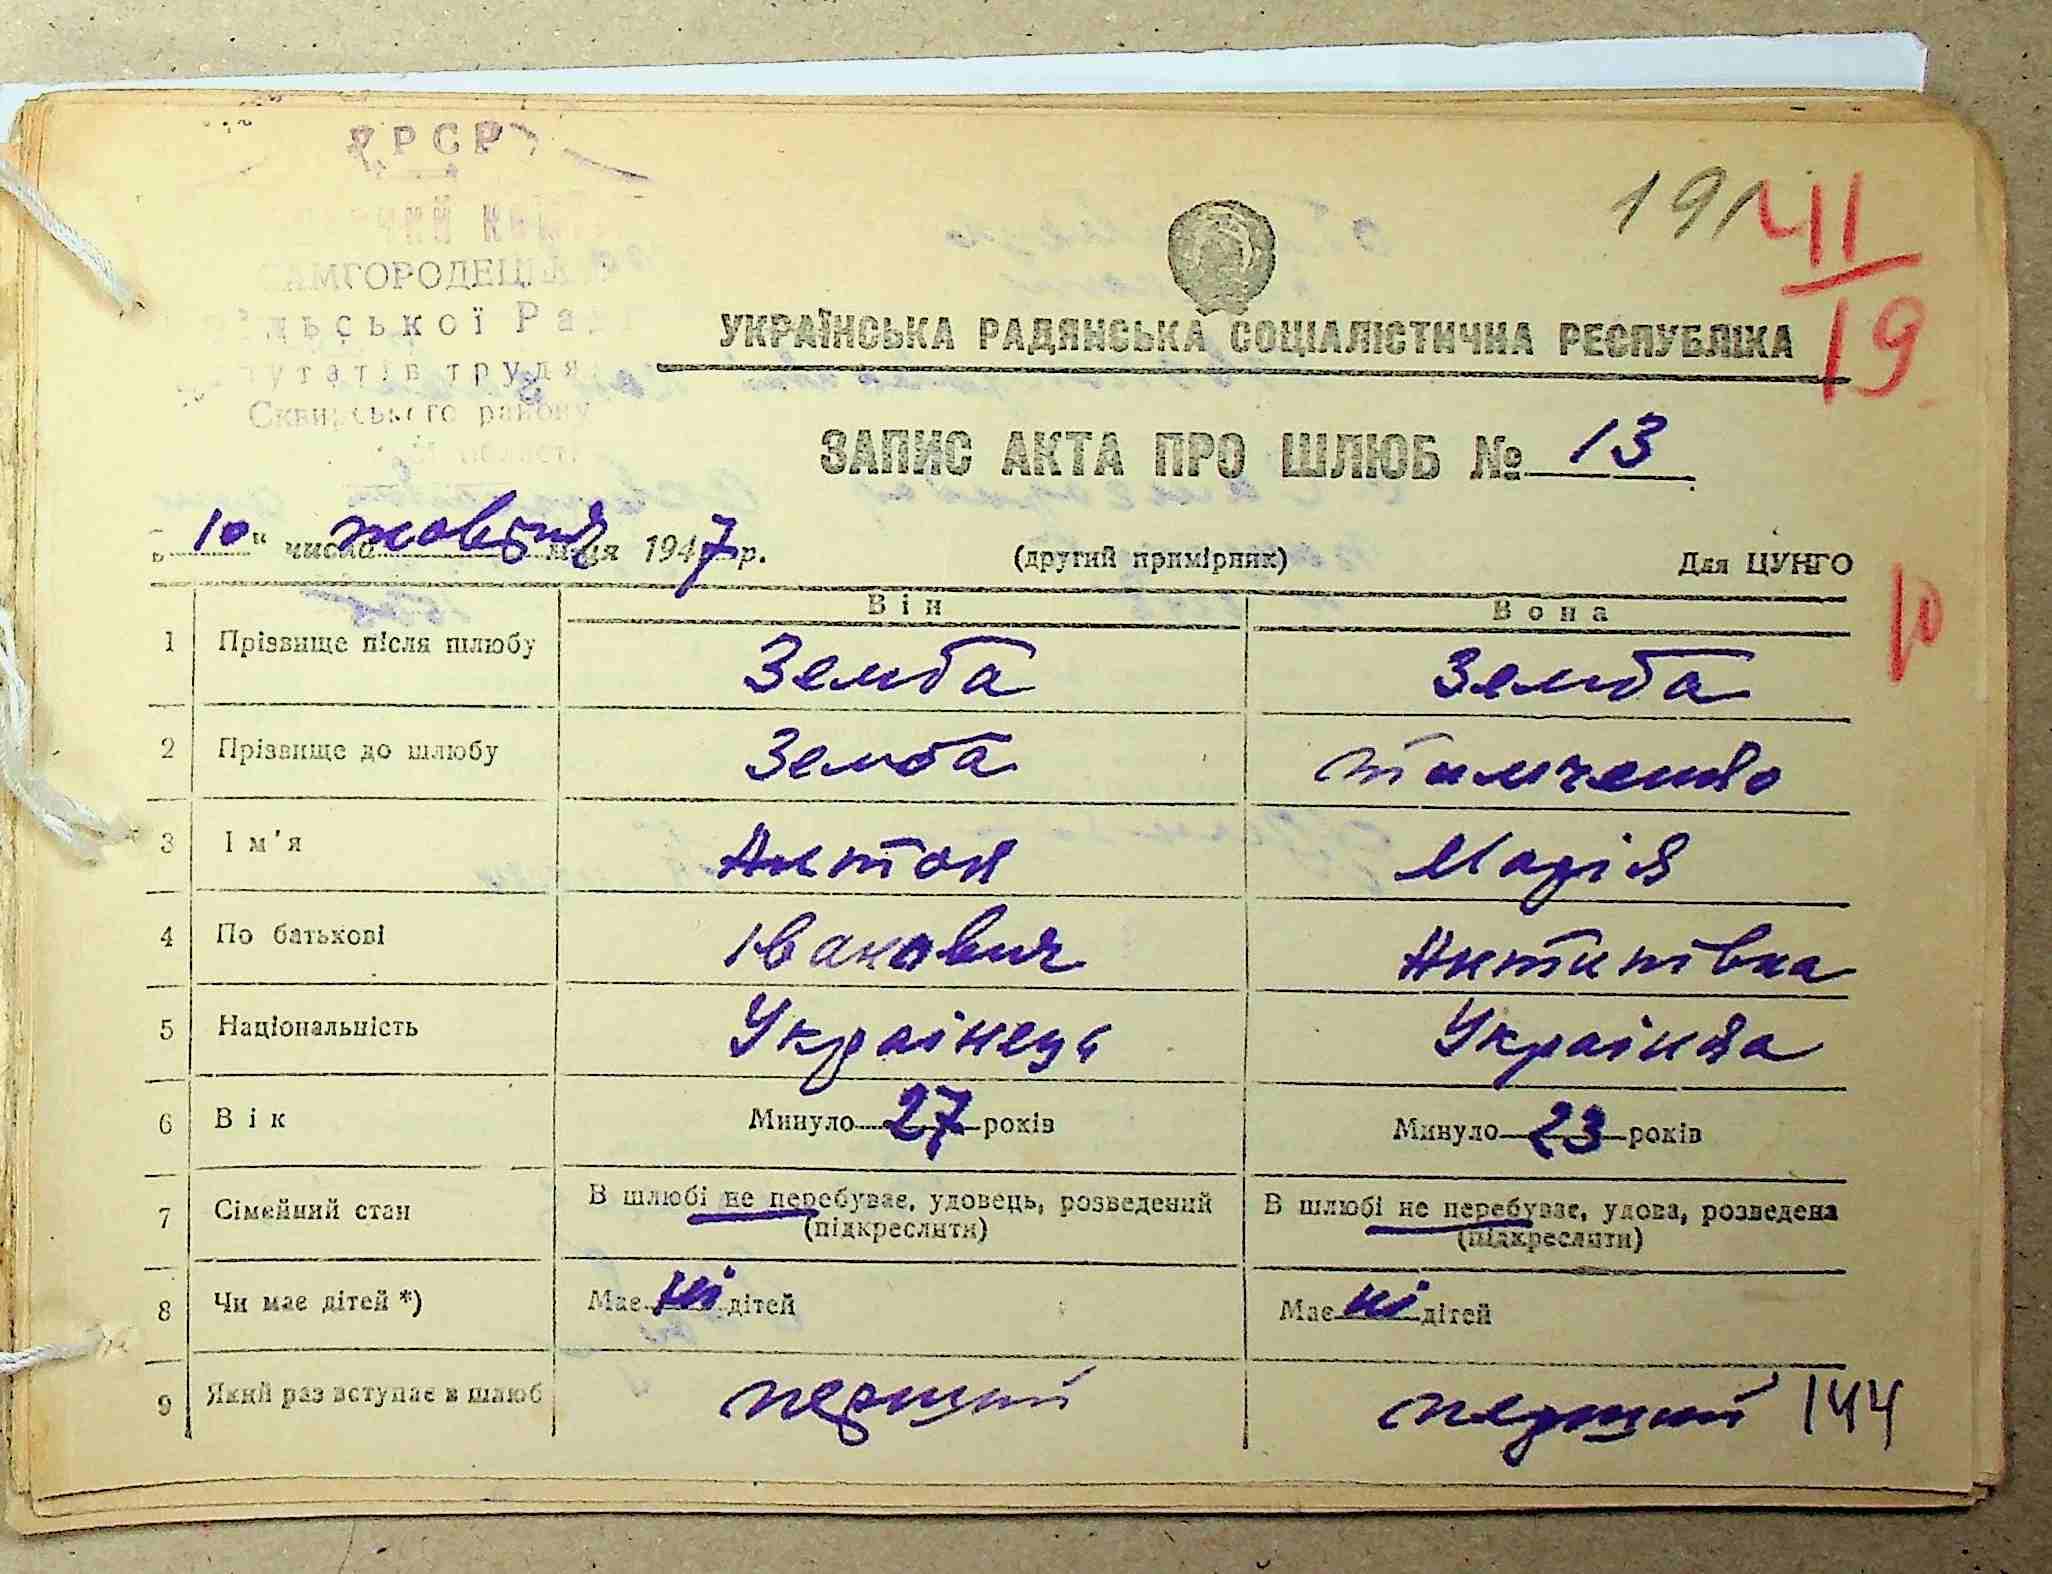 РРСР
САМГОРОДЕЦЬК
191
11
19
льської Рад
УКРАЇНСЬКА РАДЯНСЬКА СОЦІАЛІСТИЧНА РЕСПУБЛІКА
путатів трудя
Сквирського району
ЗАПИС АКТА ПРО ШЛЮБ № 13
"10" числа жовтня м-ця 1947 р. (другий примірник) Для ЦУНГО
10
Він Вона
1 Прізвище після шлюбу Земба Земба
2 Прізвище до шлюбу Земба Тимченко
3 Ім'я Антон Марія
4 По батькові Іванович Антипівна
5 Національність Українець Українка
6 Вік Минуло 27 років Минуло 23 років
7 Сімейний стан В шлюбі не перебуває, удовець, розведений (підкреслити) В шлюбі не перебуває, удова, розведена (підкреслити)
8 Чи має дітей *) Має ні дітей Має ні дітей
9 Який раз вступає в шлюб перший перший 144